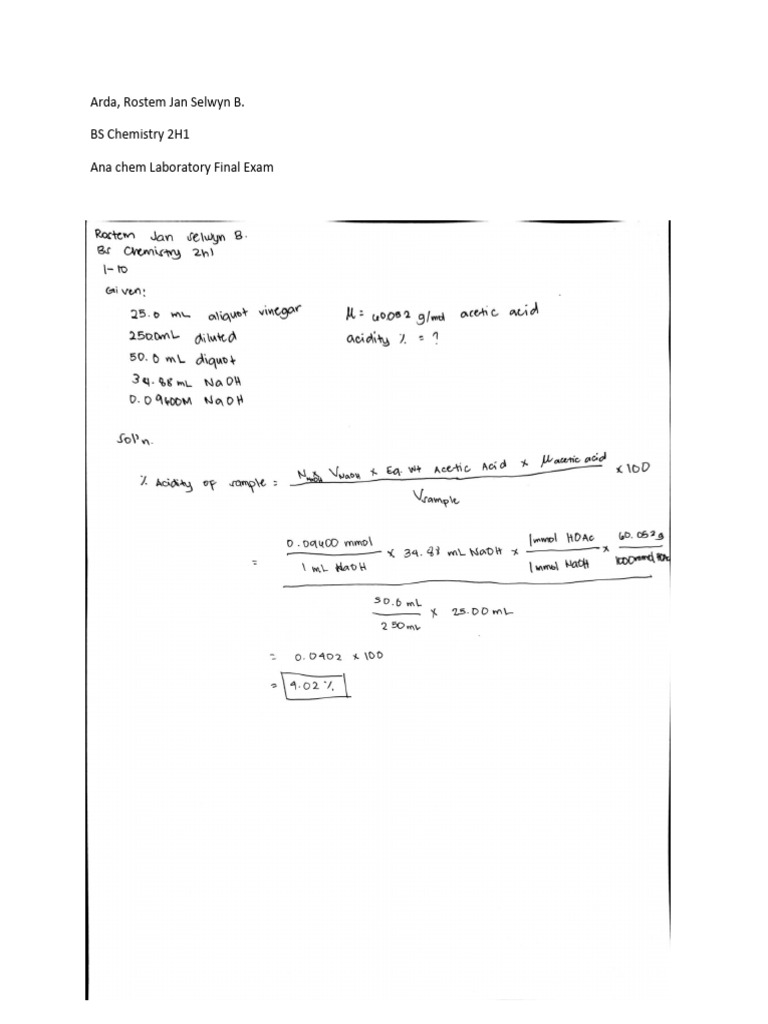 Arda, Rostem Jan Selwyn B.
BS Chemistry 2H1
Ana chem Laboratory Final Exam
Rostem Jan Selwyn B.
Bs Chemistry 2h1
1-10
Given:
25.0 mL aliquot vinegar
250.0mL diluted
50.0 mL aliquot
34.88 mL NaOH
0.09600M NaOH
μ = 60.052 g/mol acetic acid
acidity % = ?
Sol'n.
% Acidity of sample = N NaOH x V NaOH x Eq. Wt Acetic Acid x μ acetic acid / V sample x 100
= 0.09600 mmol / 1 mL NaOH x 34.88 mL NaOH x 1 mmol HOAc / 1 mmol NaOH x 60.052g / 1000mmol HOAc
50.0 mL / 250 mL x 25.00 mL
= 0.0402 x 100
= 4.02 %